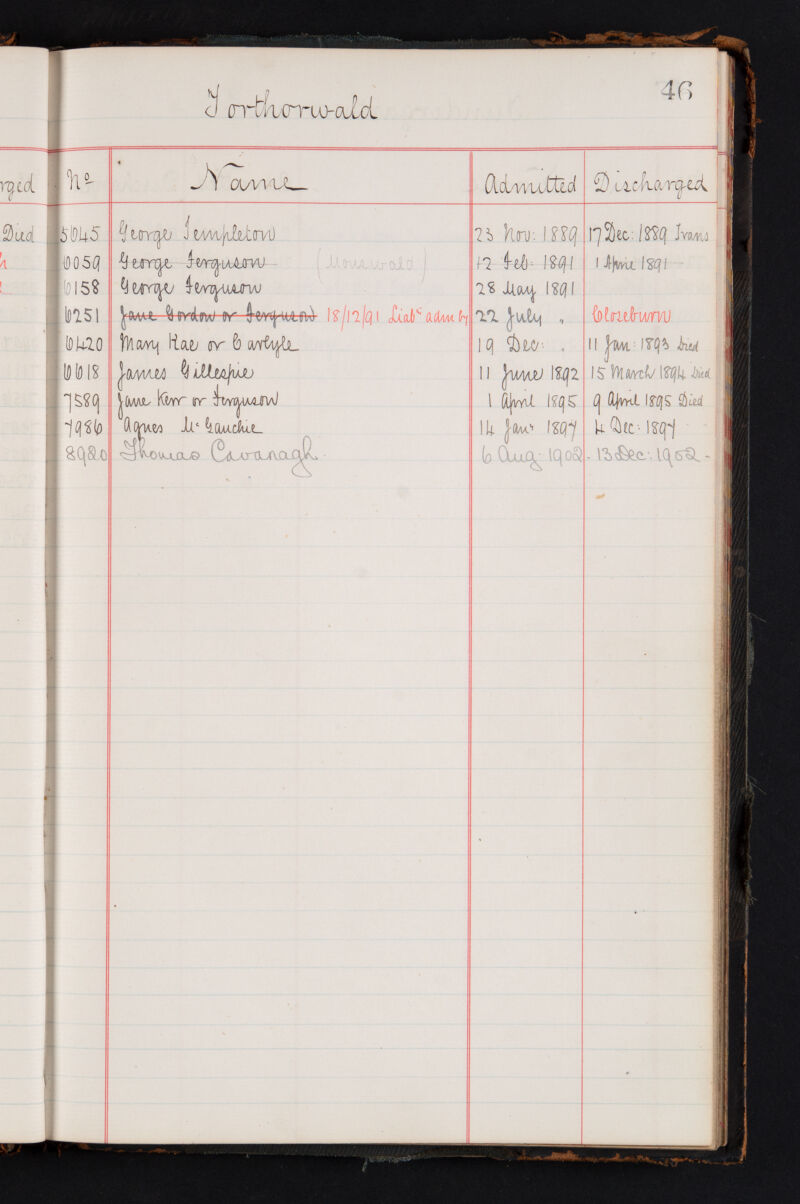 46
Torthorwald
rged No Name Admitted Discharged
Died 5045 George Templeton 23 Nov: 1889 17 Dec: 1889 Trans
6059 George Ferguson (Mouswald) 12 Feb: 1891 1 April 1891
6158 George Ferguson 28 May 1891
6251 Jane Gordon or Ferguson 18/12/91 Liaby adm by 22 July " Closeburn
6420 Mary Rae or Carlyle 19 Dec: " 11 Jan: 1893 Died
6618 James Gillespie 11 June 1892 15 March 1894 Died
7589 Jane Kerr or Ferguson 1 April 1895 9 April 1895 Died
7986 Agnes McGauchie 14 Jany 1897 4 Dec: 1897
8980 Thomas Cavanagh. 6 Aug: 1902 - 13 Dec: 1902 -